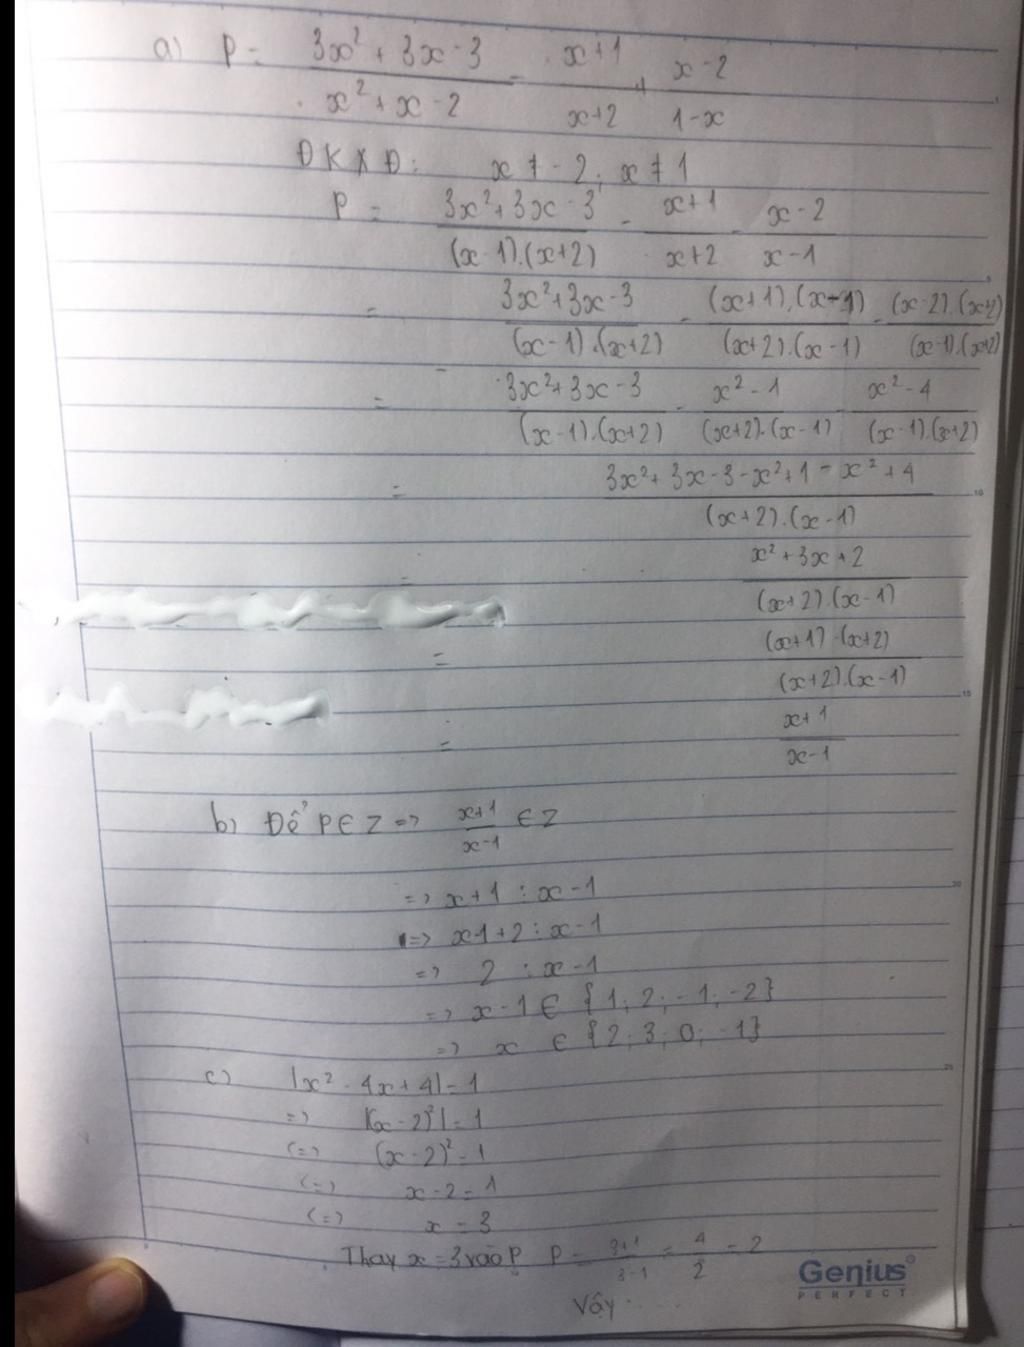 a) P = (3x² + 3x - 3)/(x² + x - 2) - (x+1)/(x+2) + (x-2)/(1-x)
ĐKXĐ: x ≠ -2; x ≠ 1
P = (3x² + 3x - 3)/((x-1).(x+2)) - (x+1)/(x+2) - (x-2)/(x-1)
= (3x² + 3x - 3)/((x-1).(x+2)) - ((x+1).(x-1))/((x+2).(x-1)) - ((x-2).(x+2))/((x-1).(x+2))
= (3x² + 3x - 3)/((x-1).(x+2)) - (x² - 1)/((x+2).(x-1)) - (x² - 4)/((x-1).(x+2))
= (3x² + 3x - 3 - x² + 1 - x² + 4)/((x+2).(x-1))
= (x² + 3x + 2)/((x+2).(x-1))
= ((x+1).(x+2))/((x+2).(x-1))
= (x+1)/(x-1)
b) Để P ∈ Z => (x+1)/(x-1) ∈ Z
=> x+1 ⋮ x-1
=> x-1+2 ⋮ x-1
=> 2 ⋮ x-1
=> x-1 ∈ {1; 2; -1; -2}
=> x ∈ {2; 3; 0; -1}
c) |x² - 4x + 4| = 1
=> |(x-2)²| = 1
(=) (x-2)² = 1
(=) x-2 = 1
(=) x = 3
Thay x = 3 vào P P = (3+1)/(3-1) = 4/2 = 2
Vậy .....
Genius
PERFECT
10
15
20
25